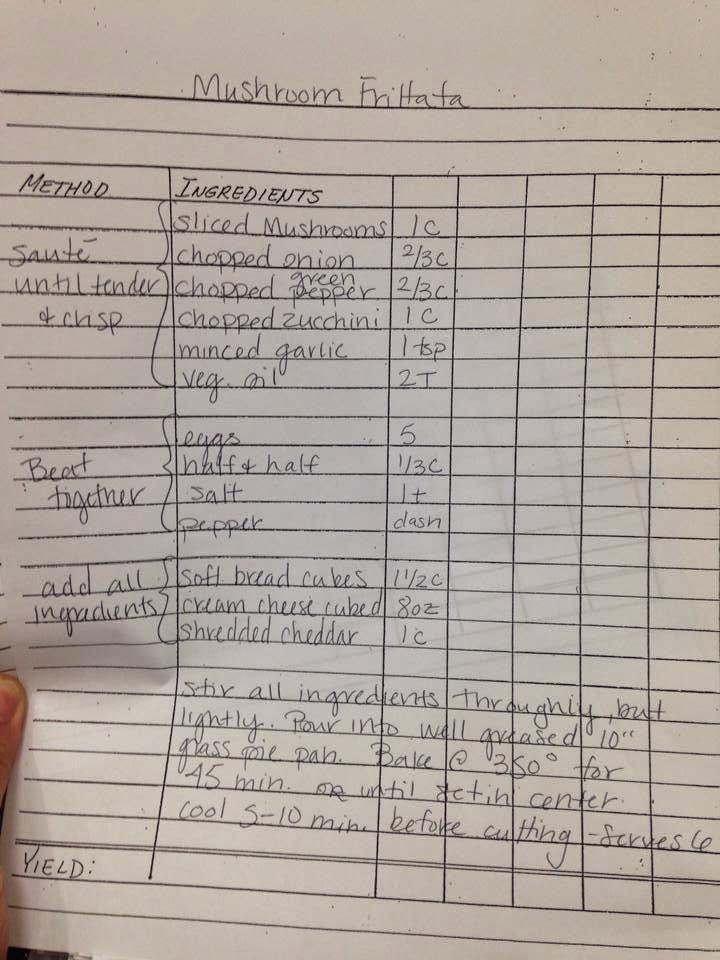 Mushroom Frittata
METHOD INGREDIENTS
sliced Mushrooms 1C
Sauté chopped onion 2/3C
until tender chopped green pepper 2/3C
& crisp chopped zucchini 1C
minced garlic 1 tsp
veg. oil 2T
eggs 5
Beat half & half 1/3C
together salt 1t
pepper dash
add all soft bread cubes 1 1/2C
ingredients cream cheese cubed 8oz
shredded cheddar 1c
stir all ingredients throughly, but
lightly. Pour into well greased 10"
glass pie pan. Bake @ 350° for
45 min. or until set in center.
cool 5-10 min. before cutting - Serves 6
YIELD: